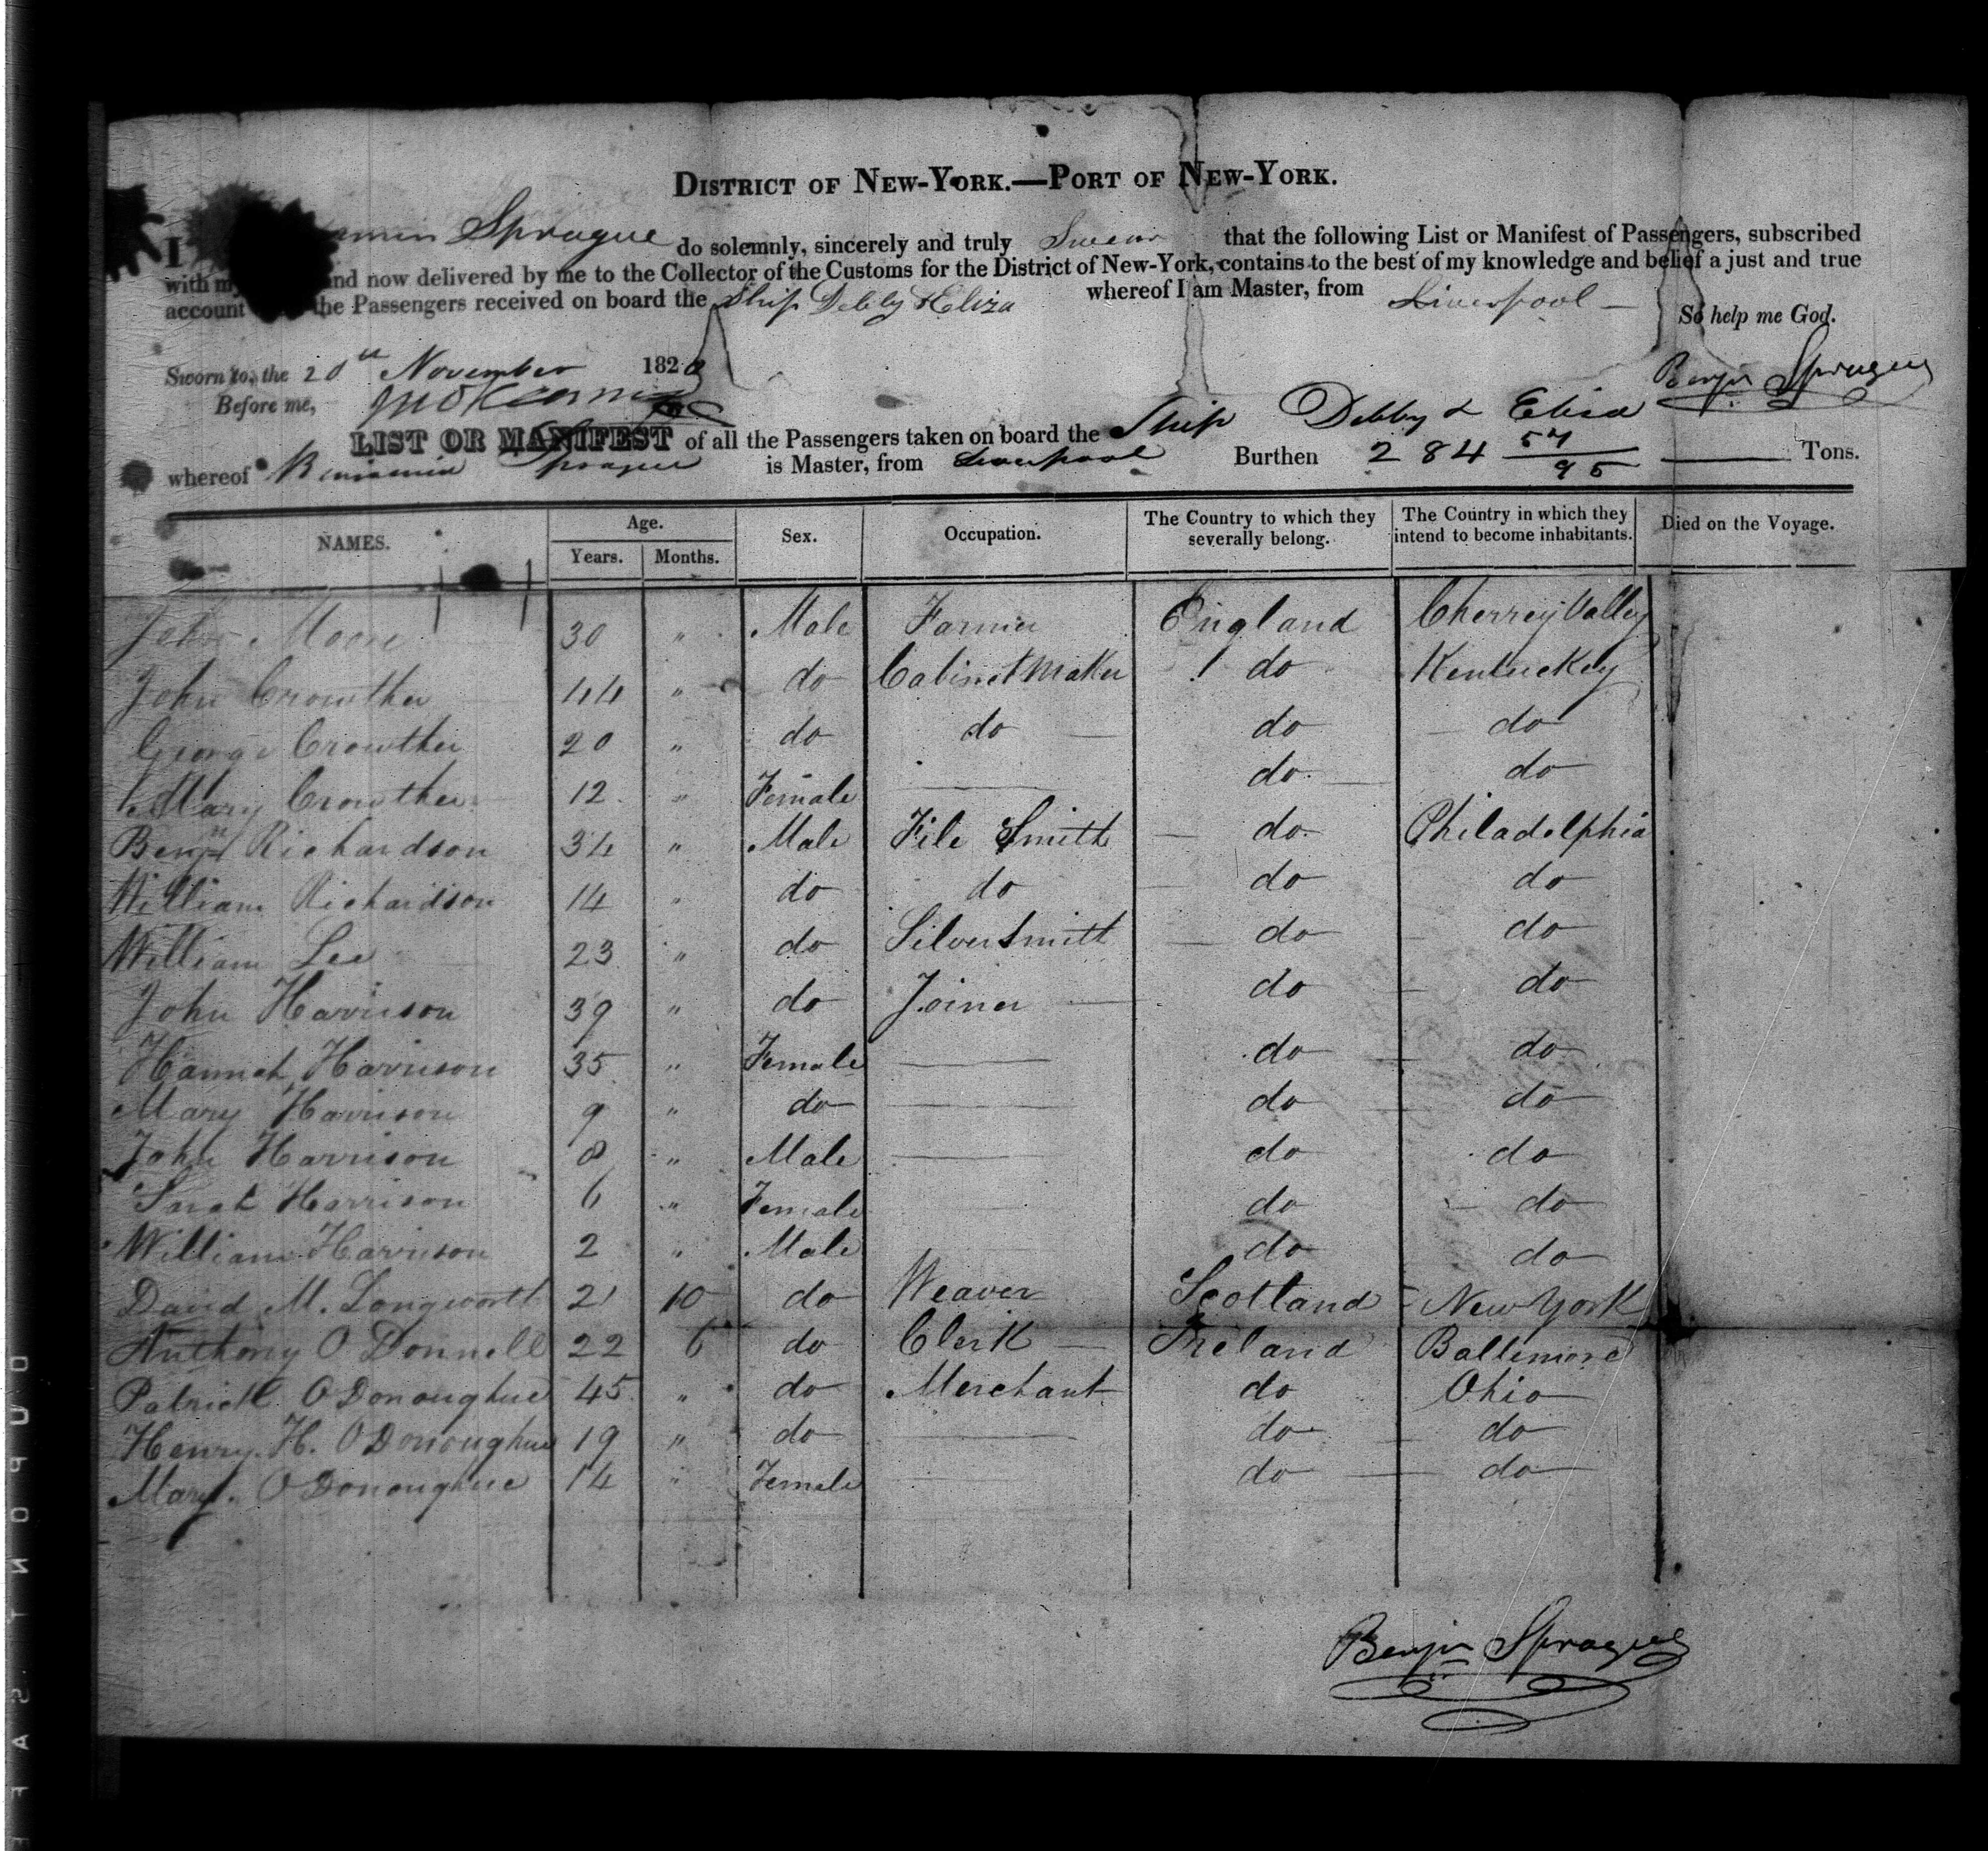 DISTRICT OF NEW-YORK.—PORT OF NEW-YORK.
I amin Sprague do solemnly, sincerely and truly Swear that the following List or Manifest of Passengers, subscribed
with my and now delivered by me to the Collector of the Customs for the District of New-York, contains to the best of my knowledge and belief a just and true
account the Passengers received on board the Ship Debby & Eliza whereof I am Master, from Liverpool —
So help me God.
Sworn to, the 20th November 1820
Benjn Sprague
Before me,
LIST OR MANIFEST of all the Passengers taken on board the Ship Debby & Eliza
whereof Benjamin Sprague is Master, from Liverpool Burthen 284 57/95 Tons.
NAMES. Age. Years. Months. Sex. Occupation. The Country to which they severally belong. The Country in which they intend to become inhabitants. Died on the Voyage.
John Moore 30 " Male Farmer England Cherrey Valley
John Crowther 44 " do Cabinet Maker do Kentuckey
George Crowther 20 " do do do do
Mary Crowther 12 " Female — do do
Benjn Richardson 34 " Male File Smith do Philadelphia
William Richardson 14 " do do do do
William Lee 23 " do Silver Smith do do
John Harrison 39 " do Joiner do do
Hannah Harrison 35 " Female — do do
Mary Harrison 9 " do — do do
John Harrison 8 " Male — do do
Sarah Harrison 6 " Female — do do
William Harrison 2 " Male do do
David M. Longworth 21 10 do Weaver Scotland New York
Anthony O Donnell 22 6 do Clerk Ireland Baltimore
Patrick O Donoughue 45 " do Merchant do Ohio
Henry H. O Donoughue 19 " do — do do
Mary O Donoughue 14 " Female — do do
Benjn Sprague
DUPONT SAFE